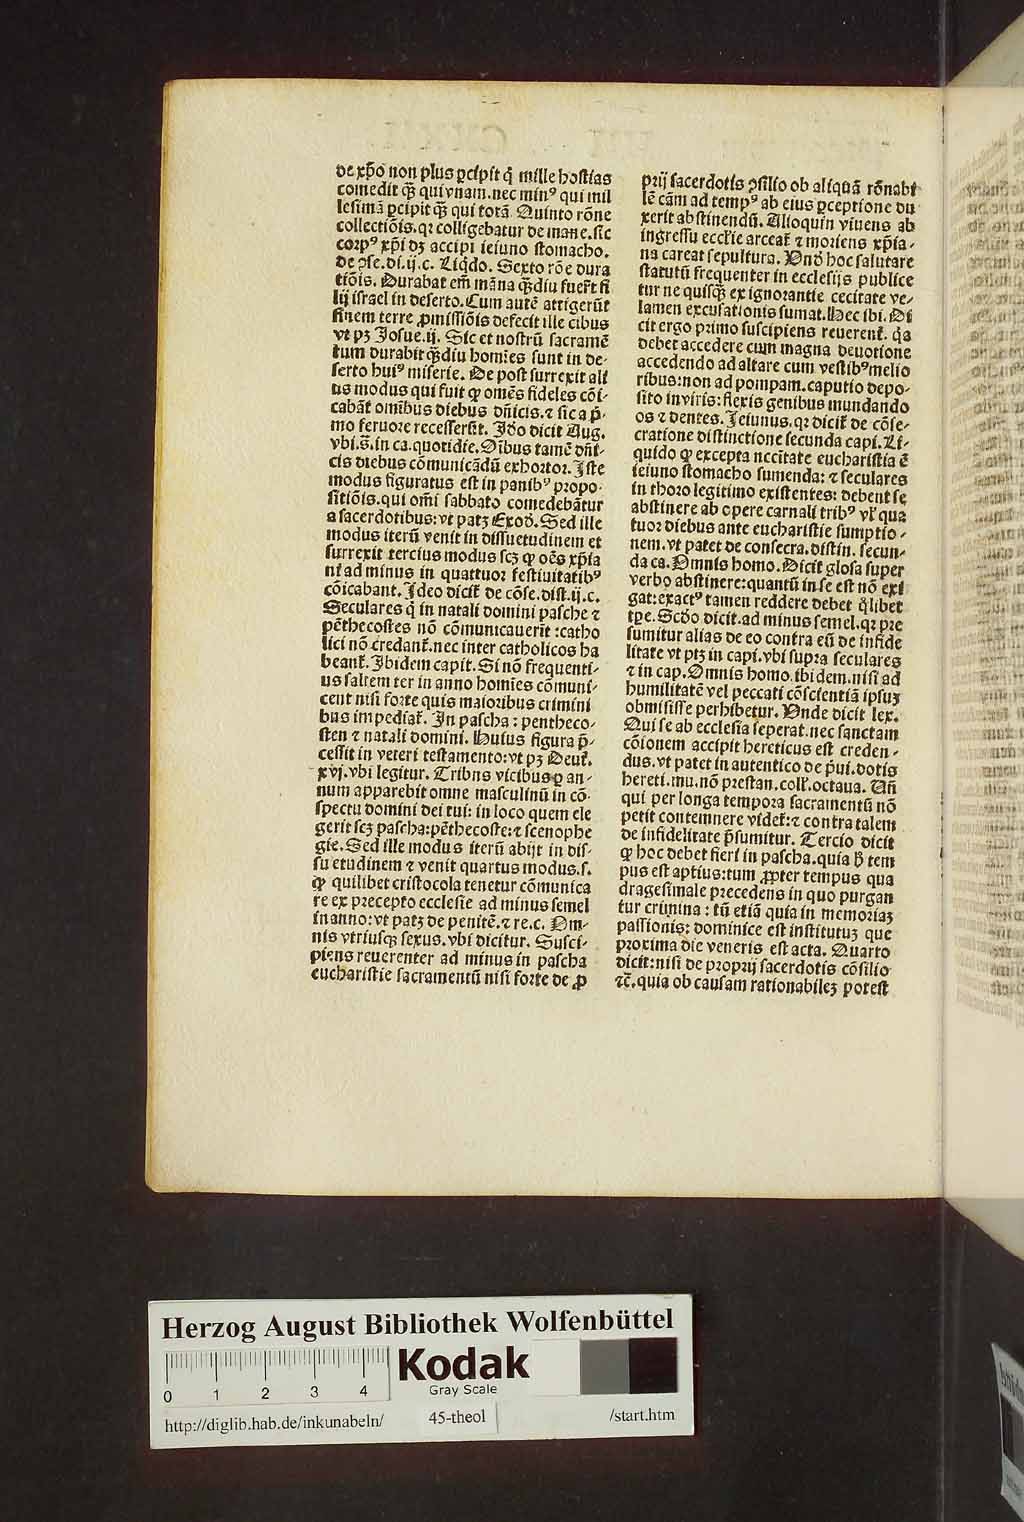 de xp̄o non plus ꝑcipit q̄ mille hostias
comedit qȝ qui vnam.nec minꝰ qui mil
lesimā ꝑcipit qȝ qui totā. Quinto rōne
collectiōis.qꝛ colligebatur de mane.sic
corpꝰ xp̄i dȝ accipi ieiuno stomacho.
de ꝯse.di.ij.c. Liq̄do. Sexto rōe dura
tiōis. Durabat em̄ māna qȝdiu fuer̄t fi
lij israel in deserto.Cum autē attigerūt
finem terre ꝓmissiōis defecit ille cibus
vt pȝ Josue.ij. Sic et nostrū sacramē
tum durabit qȝdiu hom̄ies sunt in de-
serto huiꝰ miserie. De post surrexit ali
us modus qui fuit ꝙ omēs fideles cōi-
cabāt om̄ibus diebus dn̄icis.⁊ sic a p̄-
mo feruore recesserūt. Jdo dicit Aug.
vbi.s̄.in ca.quotidie. Oībus tamē dn̄i-
cis diebus cōmunicādū exhortor. Jste
modus figuratus est in panibꝰ propo-
sitiōis.qui om̄i sabbato comedebātur
a sacerdotibus:vt patȝ Exod. Sed ille
modus iterū venit in dissuetudinem et
surrexit tercius modus scȝ ꝙ oēs xp̄ia
ni ad minus in quattuor festiuitatibꝰ
cōicabant. Jdeo dicit̄ de cōse.dist.ij.c.
Seculares q̄ in natali domini pasche ⁊
pēthecostes nō cōmunicauerīt :catho
lici nō credant̄.nec inter catholicos ha
beant̄. Jbidem capit. Si nō frequenti-
us saltem ter in anno hom̄ies cōmuni-
cent nisi forte quis maioribus crimini
bus impediat̄. Jn pascha : pentheco-
sten ⁊ natali domini. Huius figura p̄-
cessit in veteri testamento:vt pȝ Deut̄.
xvj.vbi legitur. Tribns vicibus ꝑ an-
num apparebit omne masculinū in cō-
spectu domini dei tui: in loco quem ele
gerit scȝ pascha:pēthecoste:⁊ scenophe
gie. Sed ille modus iterū abijt in dis-
su etudinem ⁊ venit quartus modus.s.
ꝙ quilibet cristocola tenetur cōmunica
re ex precepto ecclesie ad minus semel
in anno: vt patȝ de penitē.⁊ re.c. Om-
nis vtriusqȝ sexus. vbi dicitur. Susci-
piens reuerenter ad minus in pascha
eucharistie sacramentū nisi forte de ꝓ
prij sacerdotis ꝯsilio ob aliquā rōnabi
lē cām ad tempꝰ ab eius ꝑceptione du
xerit abstinendū. Alioquin viuens ab
ingressu eccl'ie arceat̄ ⁊ moriens xp̄ia-
na careat sepultura. Vnd hoc salutare
statutū frequenter in ecclesijs publice
tur ne quisqȝ ex ignorantie cecitate ve-
lamen excusationis sumat. Hec ibi. Di
cit ergo primo suscipiens reuerent̄. q̄a
debet accedere cum magna deuotione
accedendo ad altare cum vestibꝰ melio
ribus:non ad pompam.caputio depo-
sito in viris: flexis genibus mundando
os ⁊ dentes. Jeiunus.qꝛ dicit̄ de cōse-
cratione distinctione secunda capi. Li-
quido ꝙ excepta nccītate eucharistia ē
ieiuno stomacho sumenda: ⁊ seculares
in thoro legitimo existentes: debent se
abstinere ab opere carnali tribꝰ vl' qua
tuor diebus ante eucharistie sumptio-
nem.vt patet de consecra.distin. secun-
da ca. Omnis homo. Dicit glosa super
verbo abstinere: quantū in se est nō exi
gat:exactꝰ tamen reddere debet q̄libet
tpe. Scdo dicit.ad minus semel.qꝛ pre
sumitur alias de eo contra eū de infide
litate vt ptȝ in capi.vbi supra seculares
⁊ in cap. Omnis homo.ibidem.nisi ad
humilitatē vel peccati cōscientiā ipsuȝ
obmisisse perhibetur. Vnde dicit lex.
Qui se ab ecclesia seperat.nec sanctam
cōionem accipit hereticus est creden-
dus.vt patet in autentico de p̄ui.dotis
hereti.mu.nō prestan.coll'.octaua. Un̄
qui per longa tempora sacramentū nō
petit contemnere videt̄:⁊ contra talem
de infidelitate p̄sumitur. Tercio dicit
ꝙ hoc debet fieri in pascha.quia ꝟ tem
pus est aptius:tum ꝓpter tempus qua
dragesimale precedens in quo purgan
tur crimina : tū etiā quia in memoriaȝ
passionis: dominice est institutuȝ que
proxima die veneris est acta. Quarto
dicit:nisi de proprij sacerdotis cōsilio
⁊c̄.quia ob causam rationabileȝ potest
Herzog August Bibliothek Wolfenbüttel
0 1 2 3 4
Kodak
Gray Scale
http://diglib.hab.de/inkunabeln/ 45-theol /start.htm